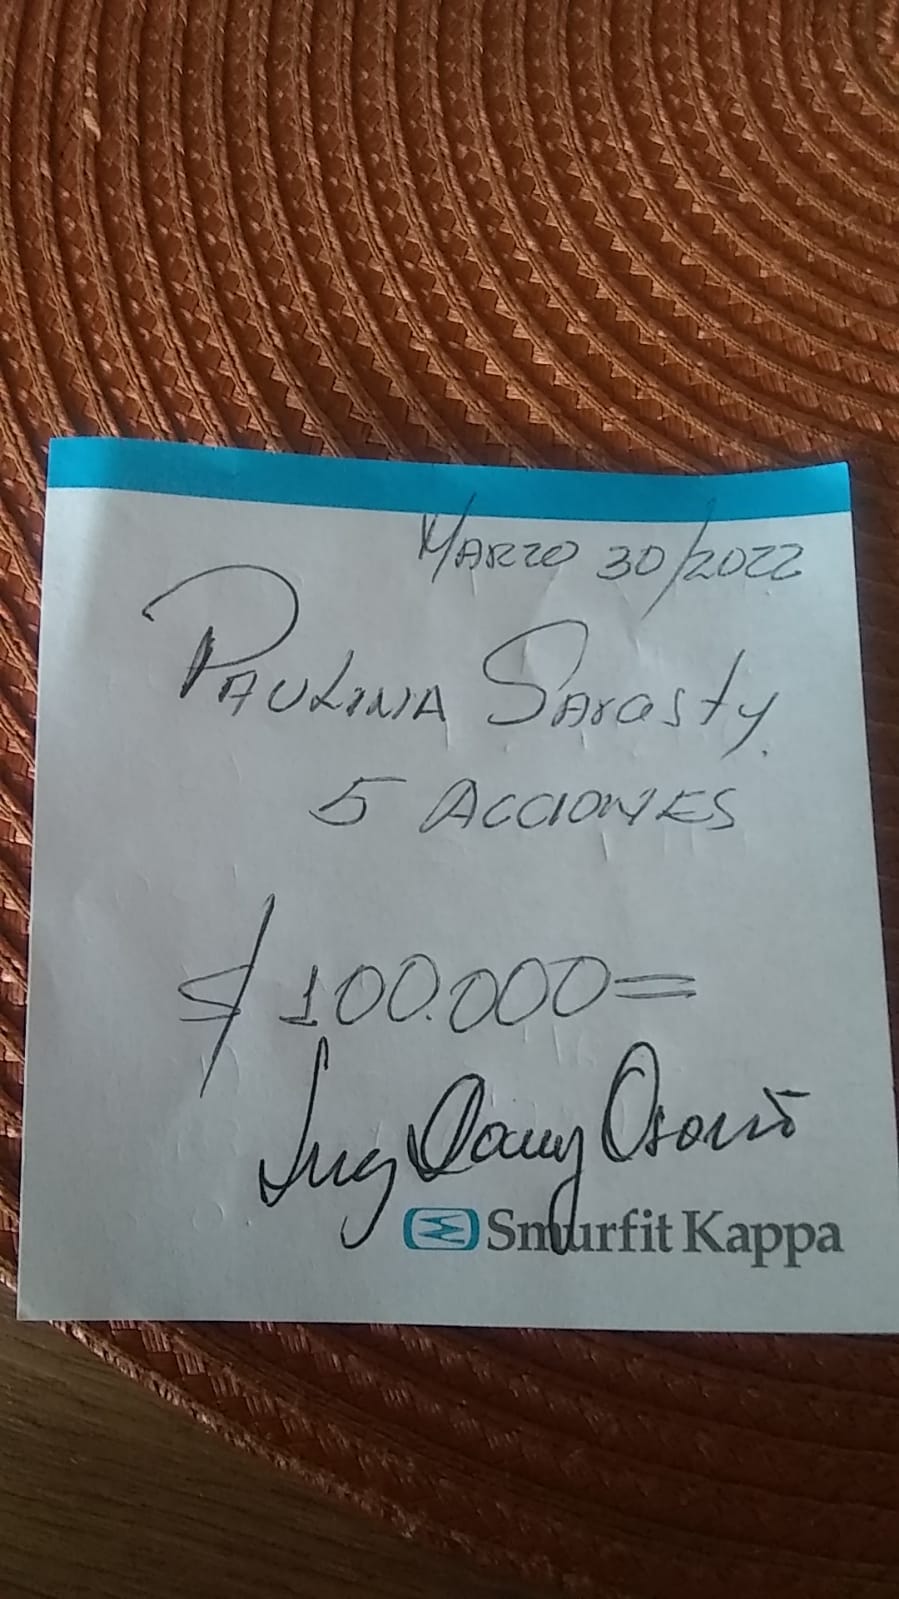 MARZO 30/2022
PAULINA SARASTY.
5 ACCIONES
$ 100.000=
Ing Dany Osorio
Smurfit Kappa